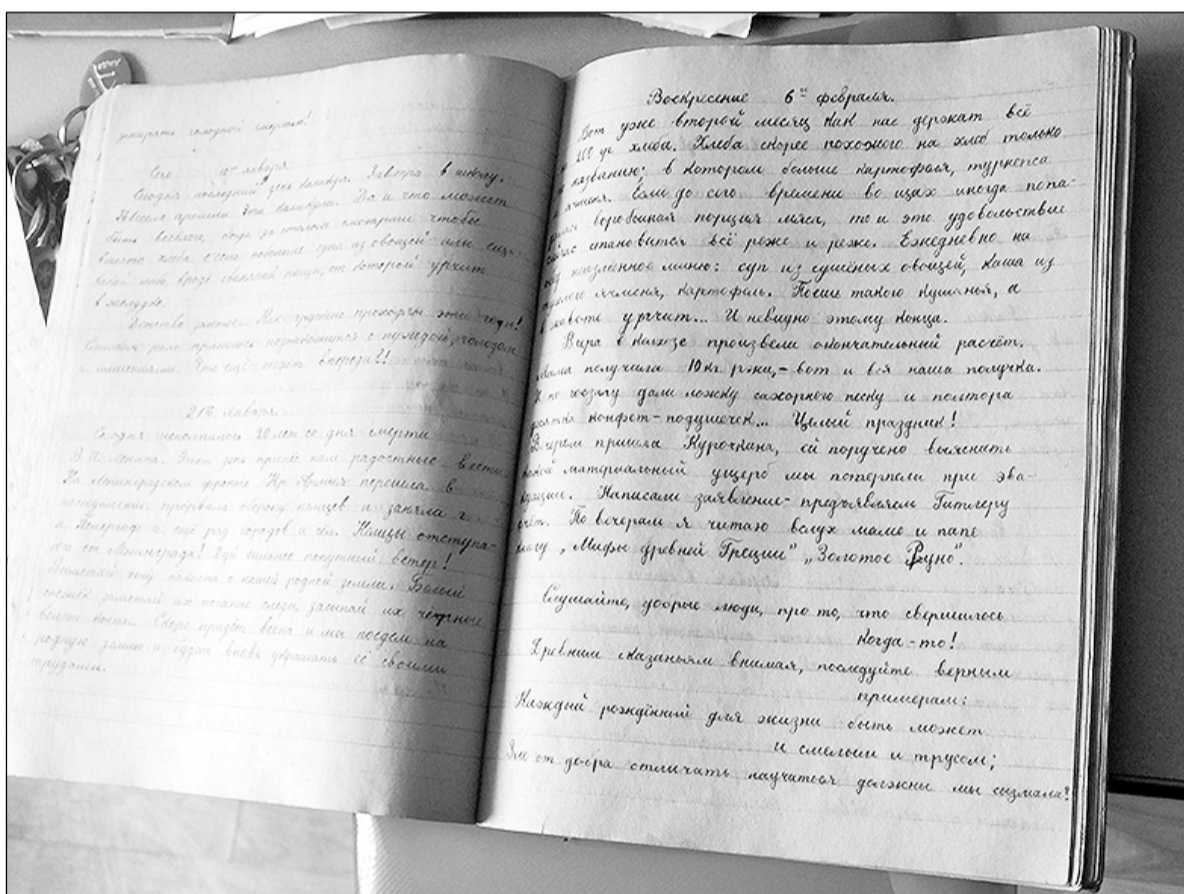 умирать голодной смертью!
10го января
Сегодня последний день каникул. Завтра в школу.
Невесело прошли эти каникулы. Да и что может
быть веселого, когда за столом смотришь чтобы
вместо хлеба съесть побольше супа из овощей или
вроде свекольной пищи, от которой урчит
в желудке.
Детство золотое. Как трудно проходят эти годы!
Слишком рано пришлось познакомиться с нуждой, голодом
и лишениями. Что ещё ждёт впереди?!
21го января
Сегодня исполнилось 20 лет со дня смерти
В. И. Ленина. Этот день принёс нам радостные вести.
На Ленинградском фронте Кр. Армия перешла в
наступление, прорвала оборону немцев и заняла г.
и Петергоф и ещё ряд городов и сёл. Немцы отступа-
ют от Ленинграда! Дуй сильнее попутный ветер!
Выметай эту пакость с нашей родной земли. Белый
снежок заметай их поганые следы, засыпай их чёрные
кости. Скоро придёт весна и мы поедем на
родную землю и будем вновь украшать её своими
трудами.
Воскресенье 6ое февраля.
Вот уже второй месяц как нас держат всё
200 гр хлеба. Хлеба скорее похожего на хлеб только
по названию; в котором больше картофеля, турнепса
и ячменя. Если до сего времени во щах иногда попа-
воробьиная порция мяса, то и это удовольствие
сейчас становится всё реже и реже. Ежедневно на
неизменное меню: суп из сушёных овощей, каша из
ячменя, картофель. Поешь такого кушанья, а
в животе урчит... И невидно этому конца.
Вчера в колхозе произвели окончательный расчёт.
Мама получила 10 кг. ржи, - вот и вся наша получка.
И по госзагу дали ложку сахорного песку и полтора
десятка конфет-подушечек... Целый праздник!
Вечером пришла Курочкина, ей поручено выяснить
какой материальный ущерб мы потерпели при эва-
куации. Написали заявление - предъявляем Гитлеру
счёт. По вечерам я читаю вслух маме и папе
книгу „Мифы древней Греции" „Золотое Руно".
Слушайте, добрые люди, про то, что свершилось
когда-то!
Древним сказаньям внимая, последуйте верным
примерам:
Каждый рождённый для жизни быть может
и смелым и трусом;
Зло от добра отличать научиться должны мы сызмала!